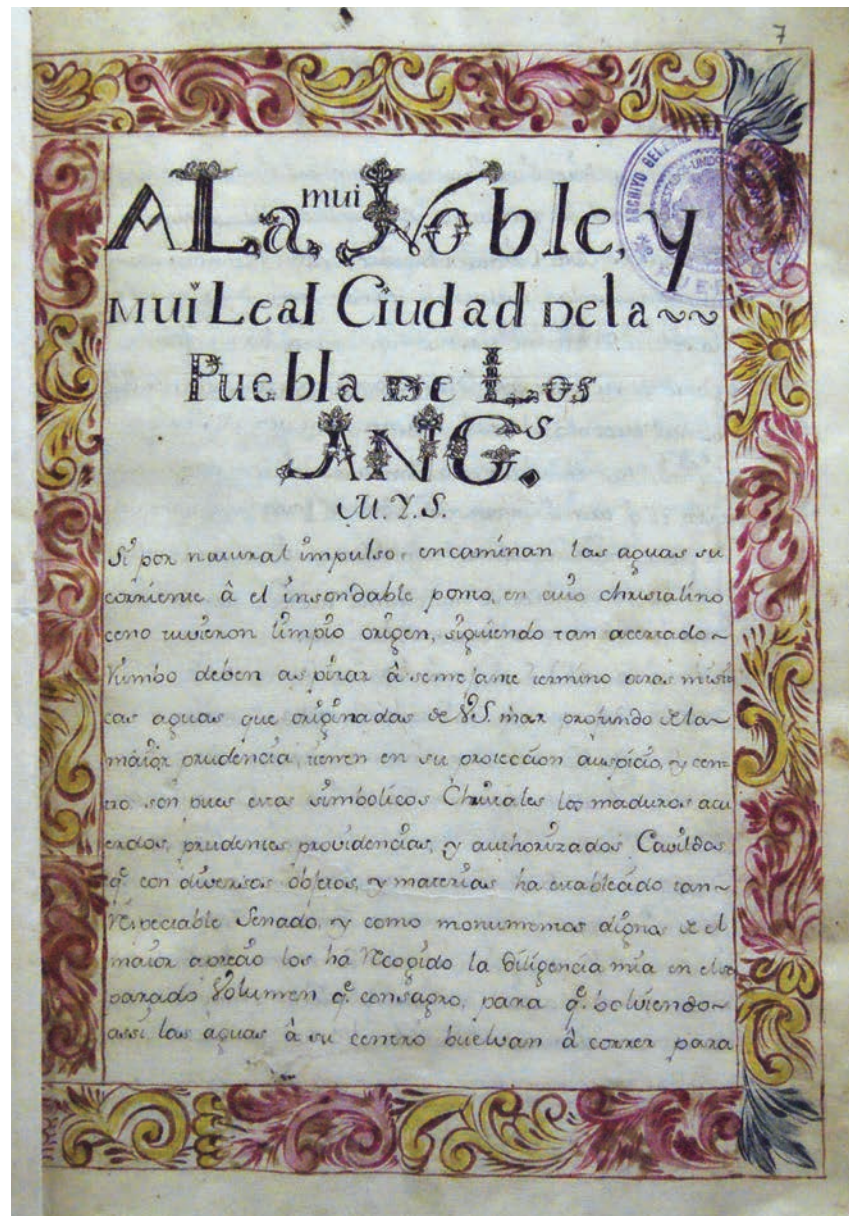 7
A La mui Noble, y
mui Leal Ciudad De la ~~
Puebla de Los
ANG.s
M.Y.S.
Si por natural impulso encaminan las aguas su
corriente â el insondable ponto, en cuio christalino
ceno tuvieron limpio origen, siguiendo tan acertado~
Rumbo deben aspirar â semejante termino otras misti
cas aguas que originadas de V.S. mar profundo de la~
maior prudencia, tienen en su proteccion auspicio, y cen
tro son pues estos simbolicos Christales los maduros acu
erdos, prudentes providencias, y authorizados Cavildos
q.e con diversos objetos, y materias ha establecido tan~
Respectable Senado, y como monumentos dignos de el
maior aprecio los hà Recogido la diligencia mia en el se
parado Volumen q.e consagro, para q.e bolviendo~
assi las aguas â su centro buelvan â correr para
ARCHIVO GENERAL DEL